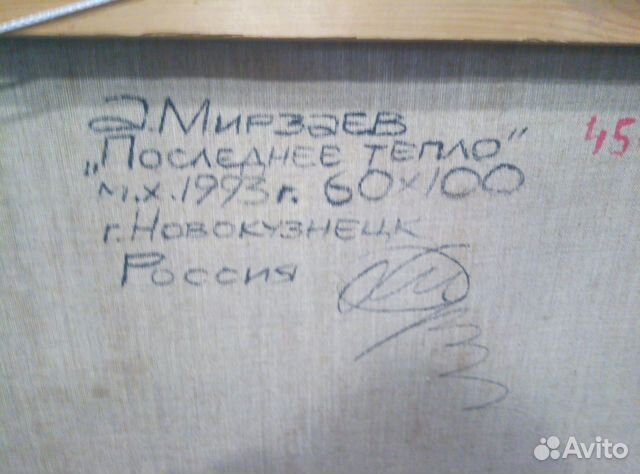 Э. Мирзаев
„Последнее тепло”
м.х. 1993 г. 60х100
г. Новокузнецк
Россия
45
Avito